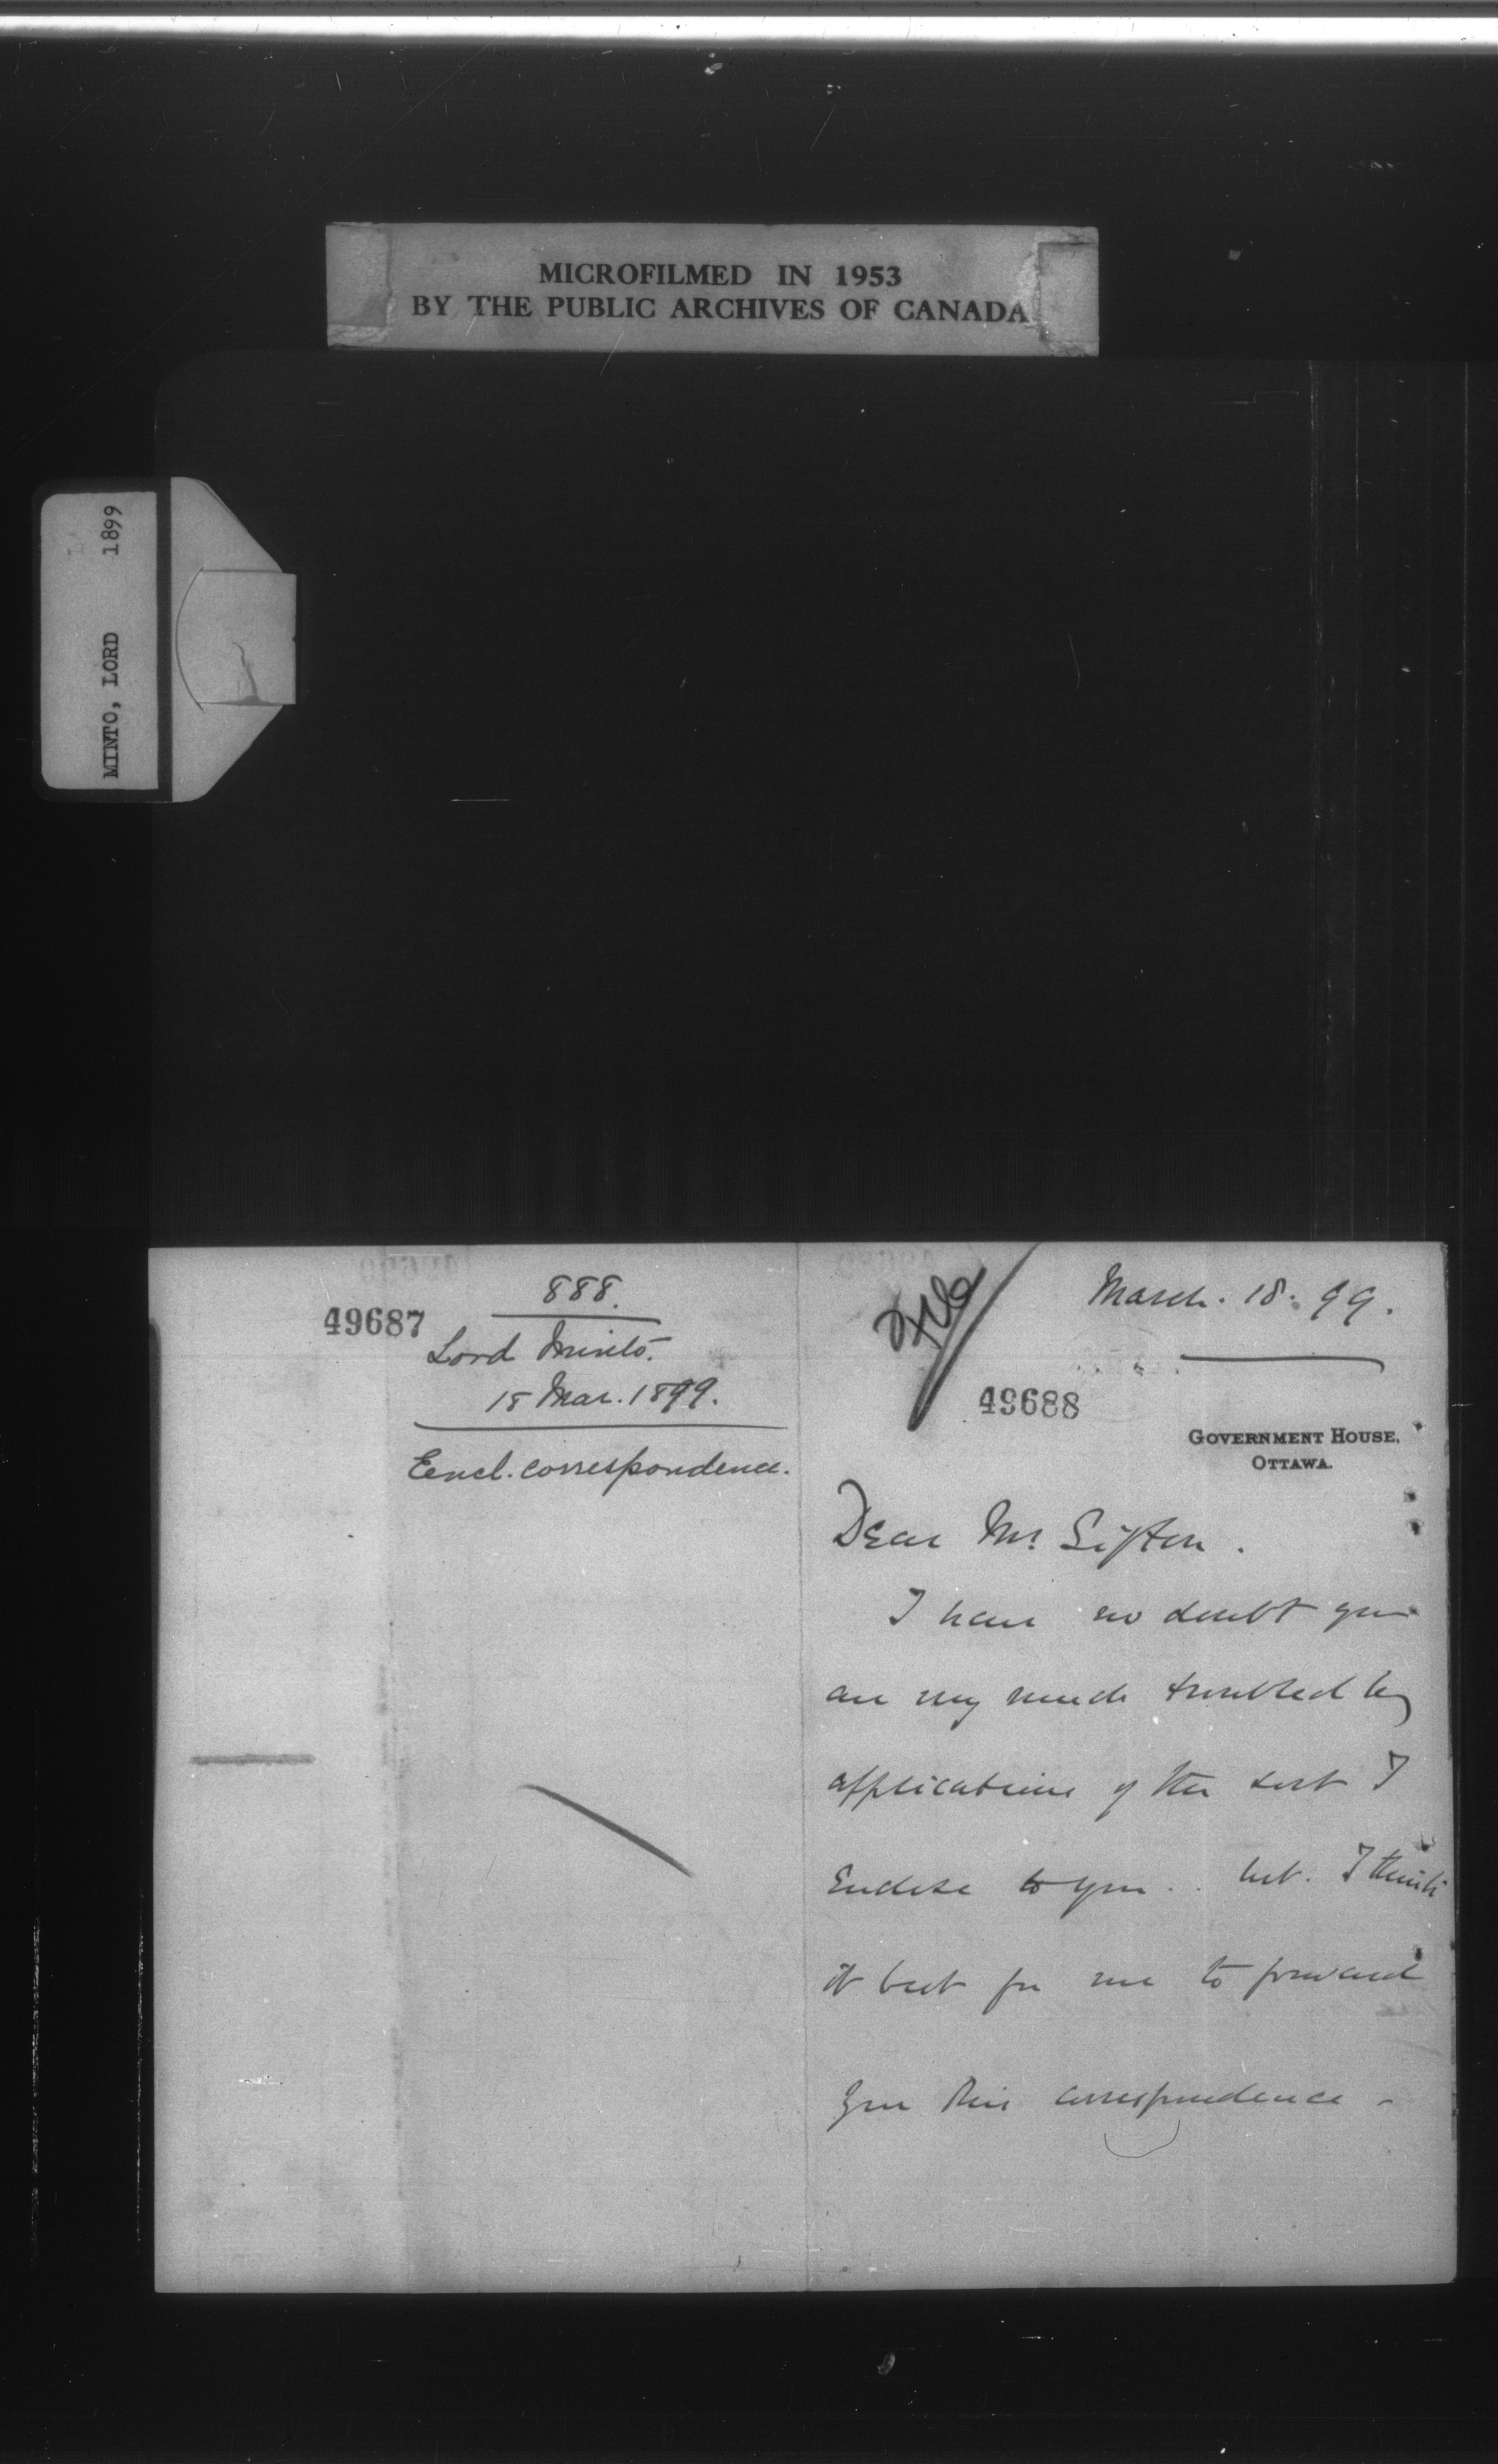 MICROFILMED IN 1953
BY THE PUBLIC ARCHIVES OF CANADA
MINTO, LORD 1899
888.
49687
Lord Minto.
18 Mar. 1899.
Eencl. correspondence.
File
March. 18. 99.
49688
GOVERNMENT HOUSE,
OTTAWA.
Dear Mr. Sifton.
I have no doubt you
are very much troubled by
applications of the sort I
enclose to you.. but. I think
it best for me to forward
you this correspondence -